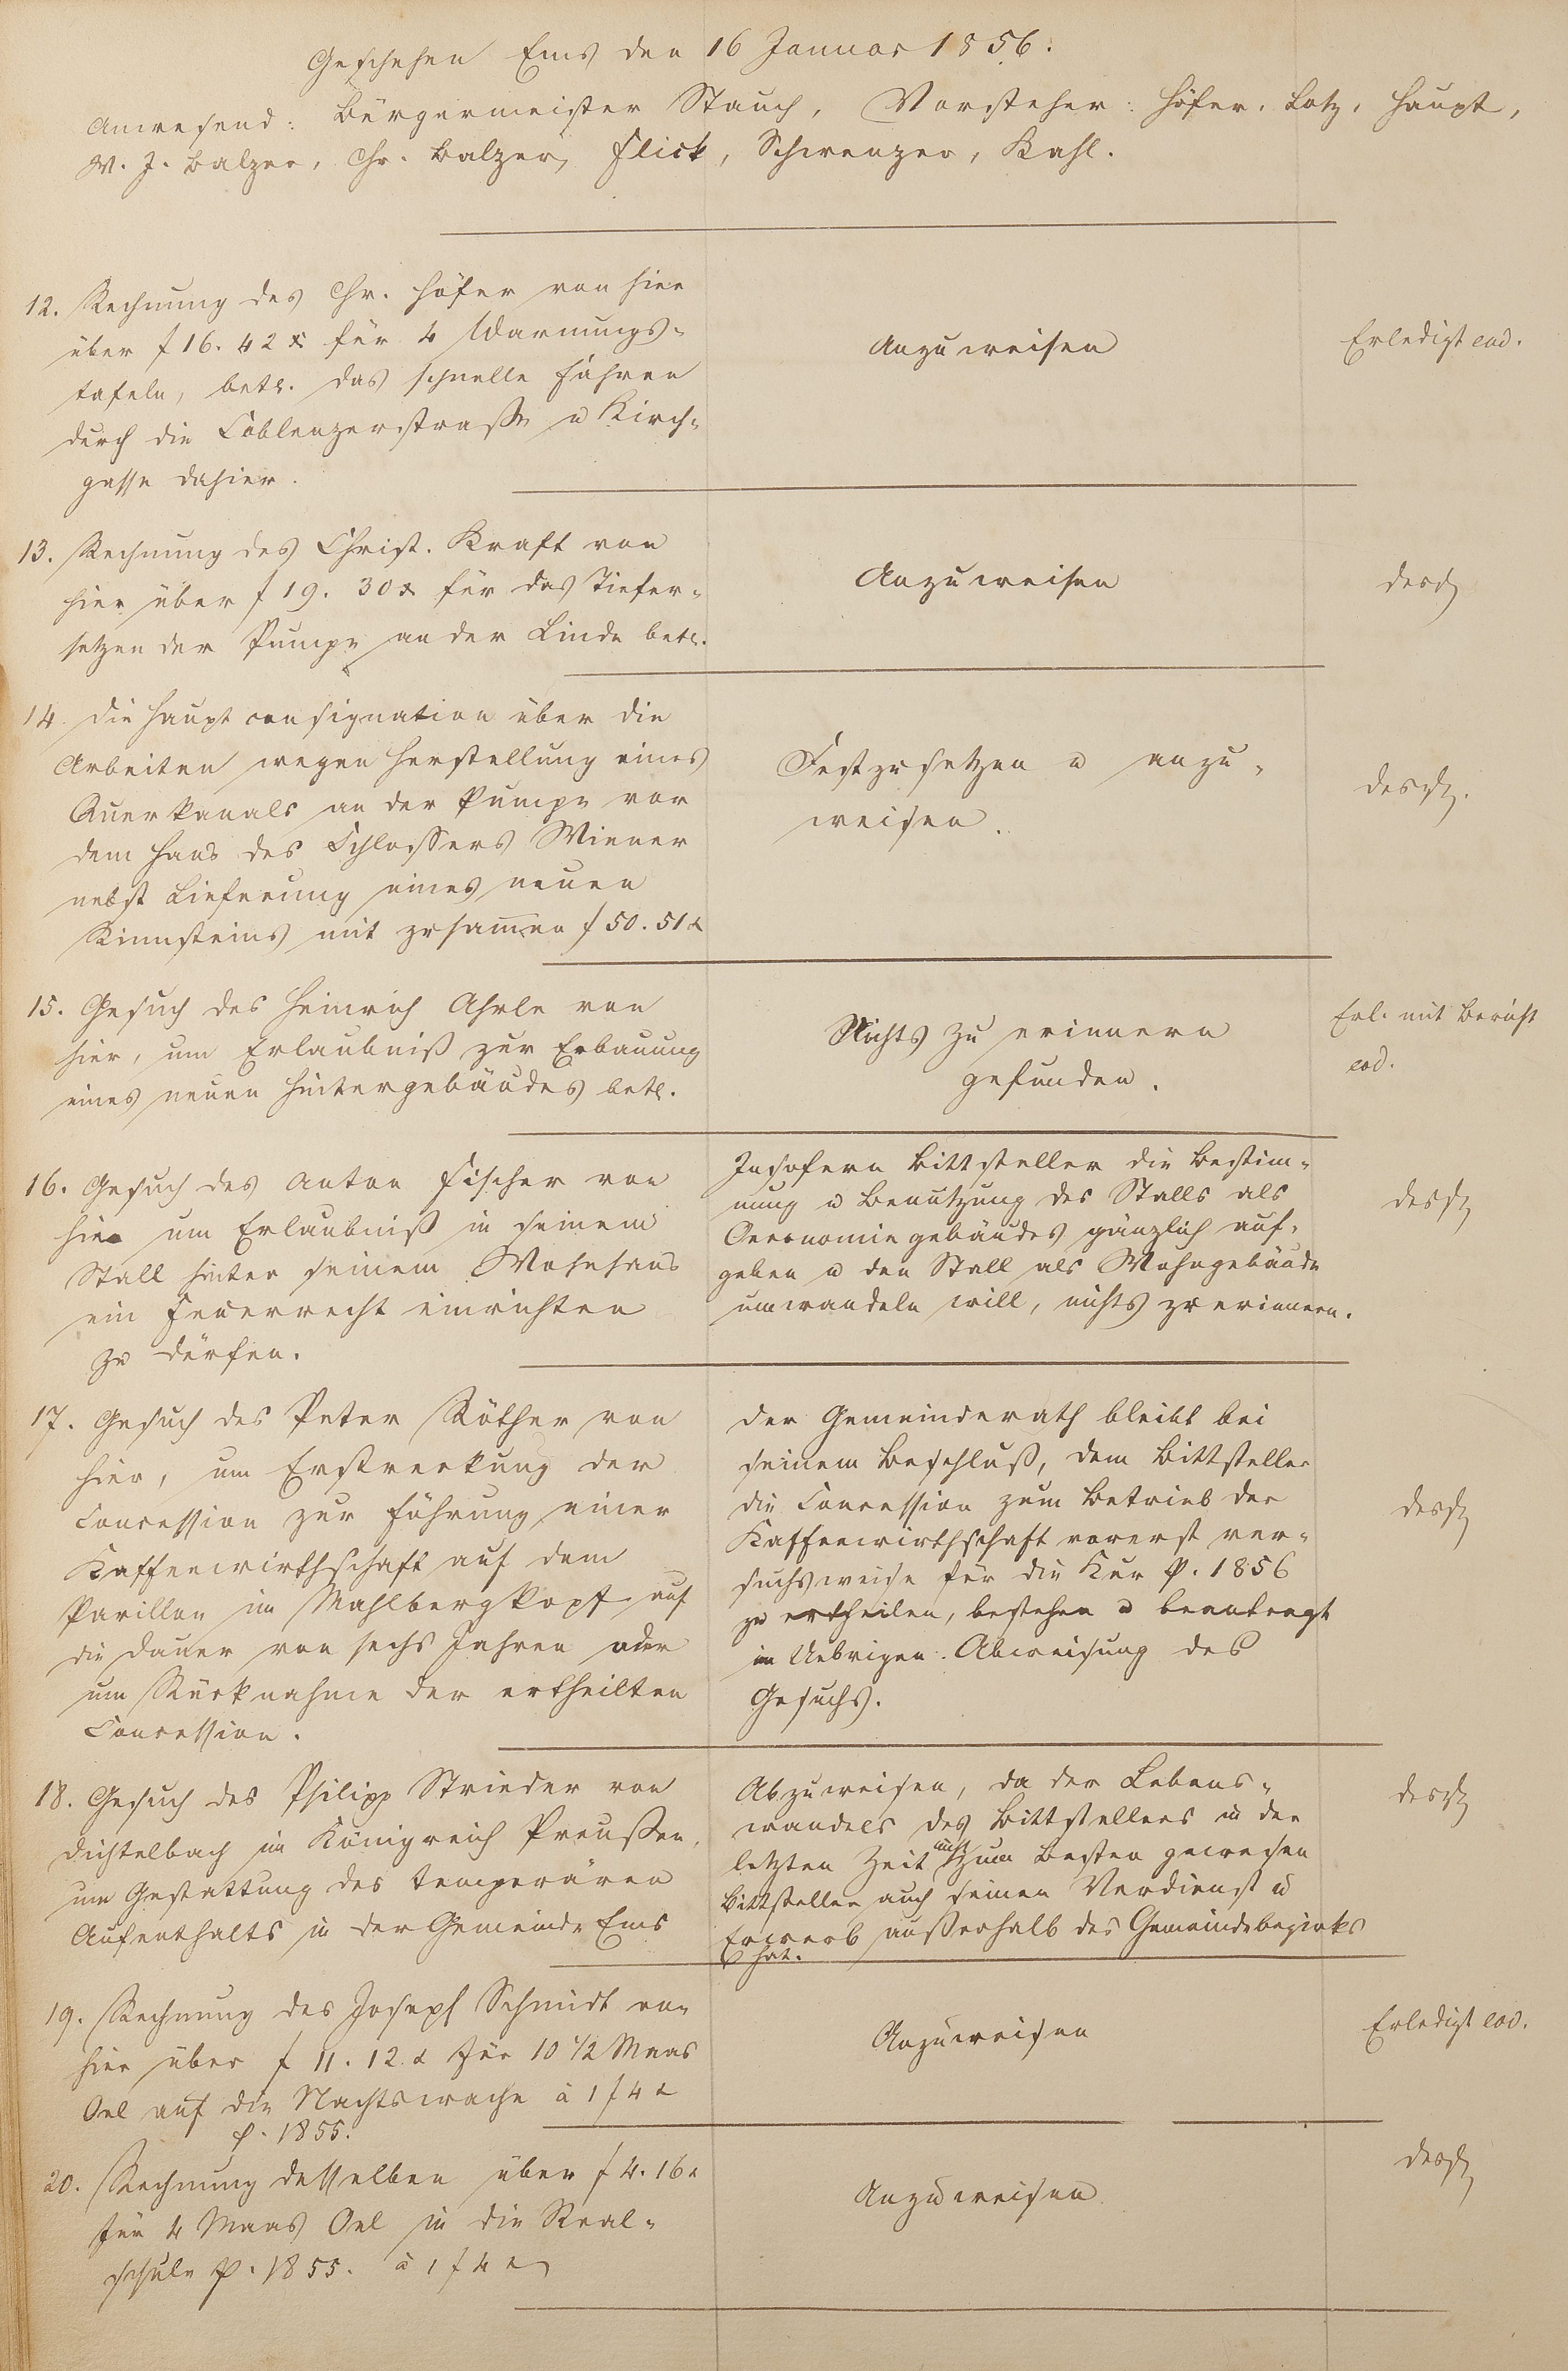 Geschehen Ems den 16 Januar 1856.
Anwesend: Bürgermeister Stauch, Vorsteher: Höfer, Lotz, Haupt,
W. J. Balzer, Chr. Balzer, Flick, Schwenzer, Kahl.
12. Rechnung des Chr. Höfer von hier
über f 16. 42 x für 4 Warnungs-
tafeln, betr. das schnelle Fahren
durch die Coblenzerstraße u Kirch-
gasse dahier.
Anzuweisen
Erledigt eod.
13. Rechnung des Christ. Kraft von
hier über f 19. 30 x für das Tiefer-
setzen der Pumpe an der Linde betr.
Anzuweisen
desgl.
14. Die Hauptconsignation über die
Arbeiten wegen Herstellung eines
Querkanals an der Pumpe vor
dem Haus des Schlossers Wiener
nebst Lieferung eines neuen
Rinnsteins mit zusamen f 50. 51 x
Festzusetzen u anzu-
weisen.
desgl.
15. Gesuch des Heinrich Ahrle von
hier, um Erlaubniß zur Erbauung
eines neuen Hintergebäudes betr.
Nichts zu erinnern
gefunden.
Erl. mit Bericht
eod.
16. Gesuch des Anton Fischer von
hier um Erlaubniß in seinem
Stall hinter seinem Wohnhaus
ein Feuerrecht einrichten
zu dürfen.
Insofern Bittsteller die Bestim-
mung u Benutzung des Stalls als
Oeconomiegebäudes gänzlich auf-
geben u den Stall als Wohngebäude
umwandeln will, nichts zu erinnern.
desgl.
17. Gesuch des Peter Röther von
hier, um Erstreckung der
Concession zur Führung einer
Kaffeewirthschaft auf dem
Pavillon im Mahlbergkopf auf
die Dauer von sechs Jahren oder
um Rücknahme der ertheilten
Concession.
Der Gemeinderath bleibt bei
seinem Beschluß, dem Bittsteller
die Concession zum Betrieb der
Kaffeewirthschaft vorerst ver-
suchsweise für die Kur p. 1856
zu ertheilen, bestehen u beantragt
im Uebrigen Abweisung des
Gesuchs.
desgl.
18. Gesuch des Philipp Strieder von
Dichtelbach im Königreich Preußen,
um Gestattung des temporären
Aufenthalts in der Gemeinde Ems
Abzuweisen, da der Lebens-
wandels des Bittstellers in der
letzten Zeit nicht zum Besten gewesen
Bittsteller auch seinen Verdienst u
Erwerb außerhalb des Gemeindebezirks
hat.
desgl.
19. Rechnung des Joseph Schmidt von
hier über f 11. 12 x für 10 1/2 Maas
Oel auf die Nachtswache à 1 f 4 x
p. 1855.
Anzuweisen
Erledigt eod.
20. Rechnung desselben über f 4. 16 x
für 4 Maas Oel in die Real-
schule p. 1855. à 1 f 4 x
Anzuweisen
desgl.